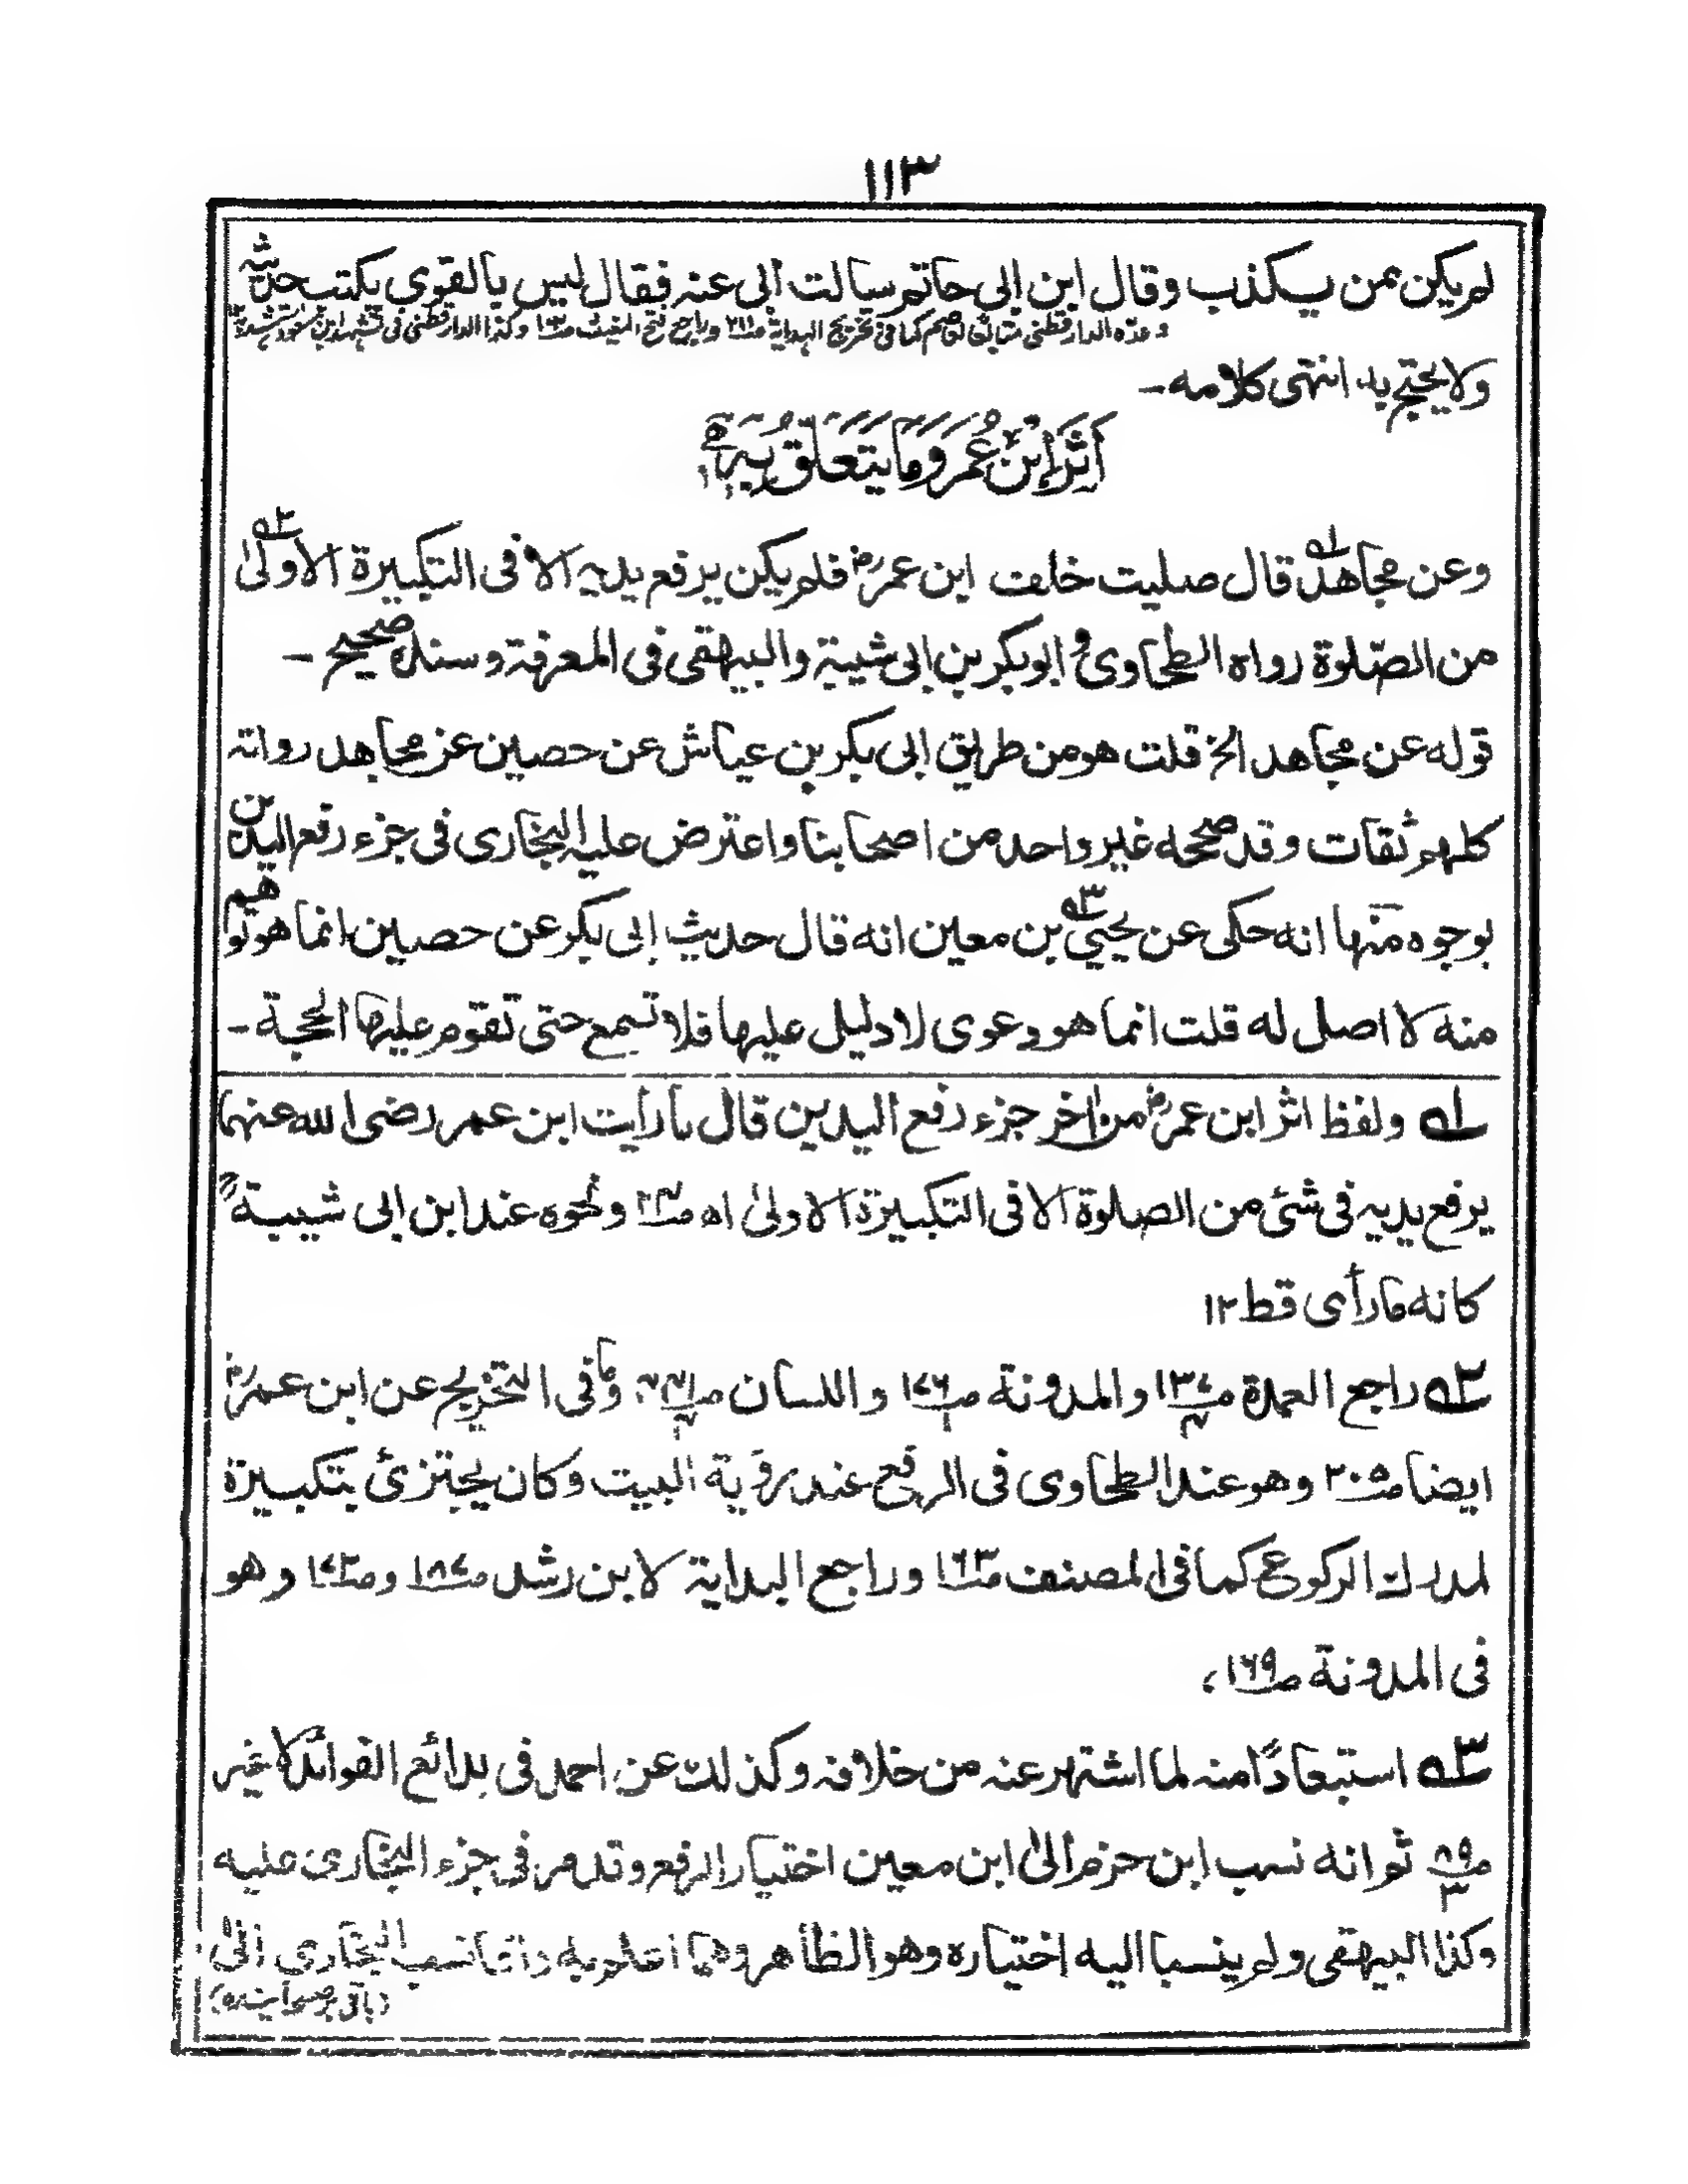 ١١٣
لم يكن بمن يكذب وقال ابن ابى حاتم سالت ابى عنه فقال ليس بالقوى يكتب حديثه
وعدّه الدارقطنى كما فى تخريج الهداية وراجع فتح المغيث وكذا الدارقطنى فى
ولا يحتج به، انتهى كلامه -
أَثَرُ إِبْنِ عُمَرَ وَمَا يَتَعَلَّقُ بِهٖ
وعن مجاهد له قال صليت خلف ابن عمرؓ فلم يكن يرفع يديه الا فى التكبيرة الاولىٰ ٢ه
من الصّلوة رواه الطحاوى وابوبكر بن ابى شيبة والبيهقى فى المعرفة وسنده صحيح -
قوله عن مجاهد الخ قلت هو من طريق ابى بكر بن عياش عن حصين عن مجاهد رواته
كلهم ثقات وقد صححه غير واحد من اصحابنا واعترض عليه البخارى فى جزء رفع اليدين
بوجوه منها انه حكى عن يحيى ٣ه بن معين انه قال حديث ابى بكر عن حصين انما هو توهم
منه لا اصل له قلت انما هو دعوى لا دليل عليها فلا تسمع حتى تقوم عليها الحجة -
١ه ولفظ اثر ابن عمرؓ من اٰخر جزء رفع اليدين قال ما رأيت ابن عمر رضى الله عنهما
يرفع يديه فى شئ من الصلوة الا فى التكبيرة الاولىٰ اه صـ٢٣ ونحوه عند ابن ابى شيبة
كانه ما رأى قط ١٢
٢ه راجع العمدة صـ١٣٧ والمدونة صـ١٧٦ واللسان وما فى التخريج عن ابن عمرؓ
ايضا صـ٢٠٥ وهو عند الطحاوى فى الرفع عند رؤية البيت وكان يجتزئ بتكبيرة
لمدرك الركوع كما فى المصنف صـ١٦٣ وراجع البداية لابن رشد صـ١٨٧ وصـ١٧٣ وهو
فى المدونة صـ١٦٩،
٣ه استبعادًا منه لما اشتهر عنه من خلافه وكذلك عن احمد فى بدائع الفوائد لا غير
صـ٨٩/٣ ثم انه نسب ابن حزم الىٰ ابن معين اختيار الرفع وقد مر فى جزء البخارى عليه
وكذا البيهقى ولم ينسبا اليه اختياره وهو الظاهر وهما اعلم به وانما نسب البخارى الىٰ
(باقى بر صفحه آينده)